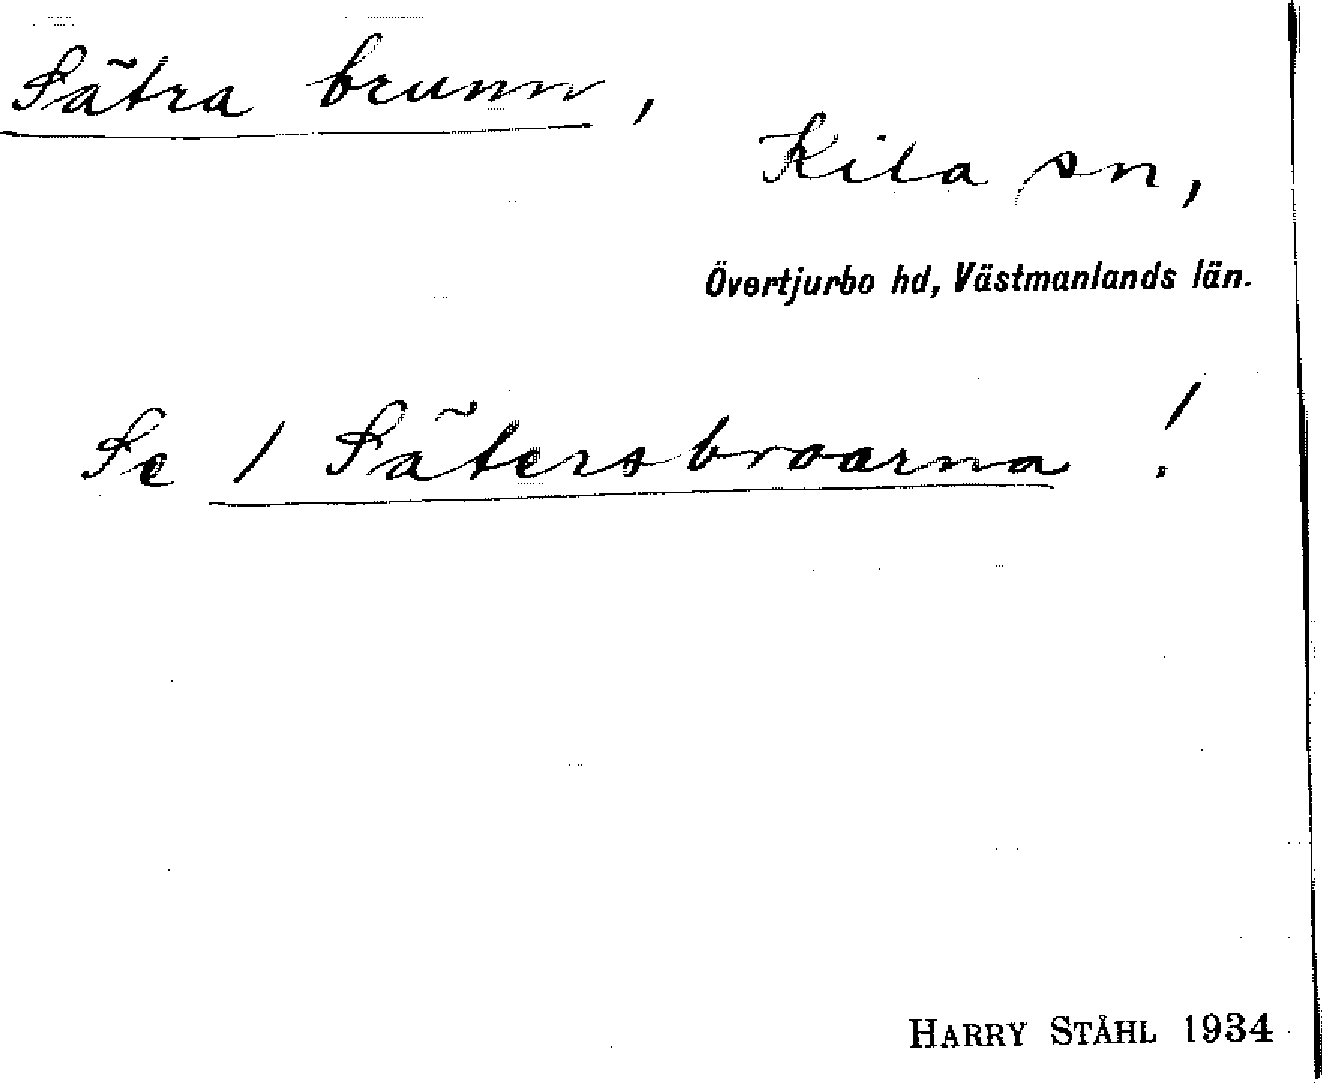 Sätra brunn,
Kila sn,
Övertjurbo hd, Västmanlands län.
Se / Sätersbroarna !
HARRY STÅHL 1934